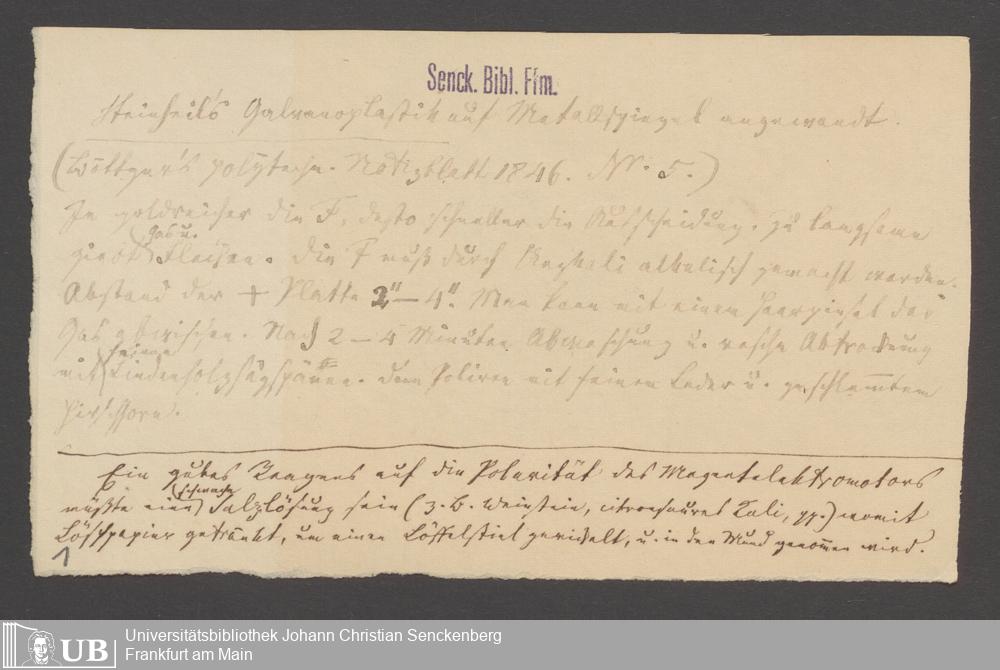 Senck. Bibl. Ffm.
Steinheil's Galvanoplastik auf Metallspiegel angewandt.
(Böttger's polytechn. Notizblatt 1846. Nr. 5.)
Je goldreicher die F, desto schneller die Ausscheidung. Zu langsame
giebt Flecken. Die F muß durch alkalisch gemacht werden.
Abstand der + Platte 2"— 4". Man kann mit einem Haarpinsel das
Gas abwischen. Nach 2 — 4 Minuten Abwaschung u. rasche Abtrocknung
mit feinen Lindenholzsägspänen. dann Poliren mit feinem Leder u. geschlämmtem
Hirschhorn.
Ein gutes Reagens auf die Polarität des Magnetelektromotors
müßte eine schwache Salzlösung sein (z. B. Weinstein, citronsaures Kali, pp.) womit
Löschpapier getränkt, um einen Löffelstiel gewickelt, u. in den Mund genommen wird.
1
UB
Universitätsbibliothek Johann Christian Senckenberg
Frankfurt am Main